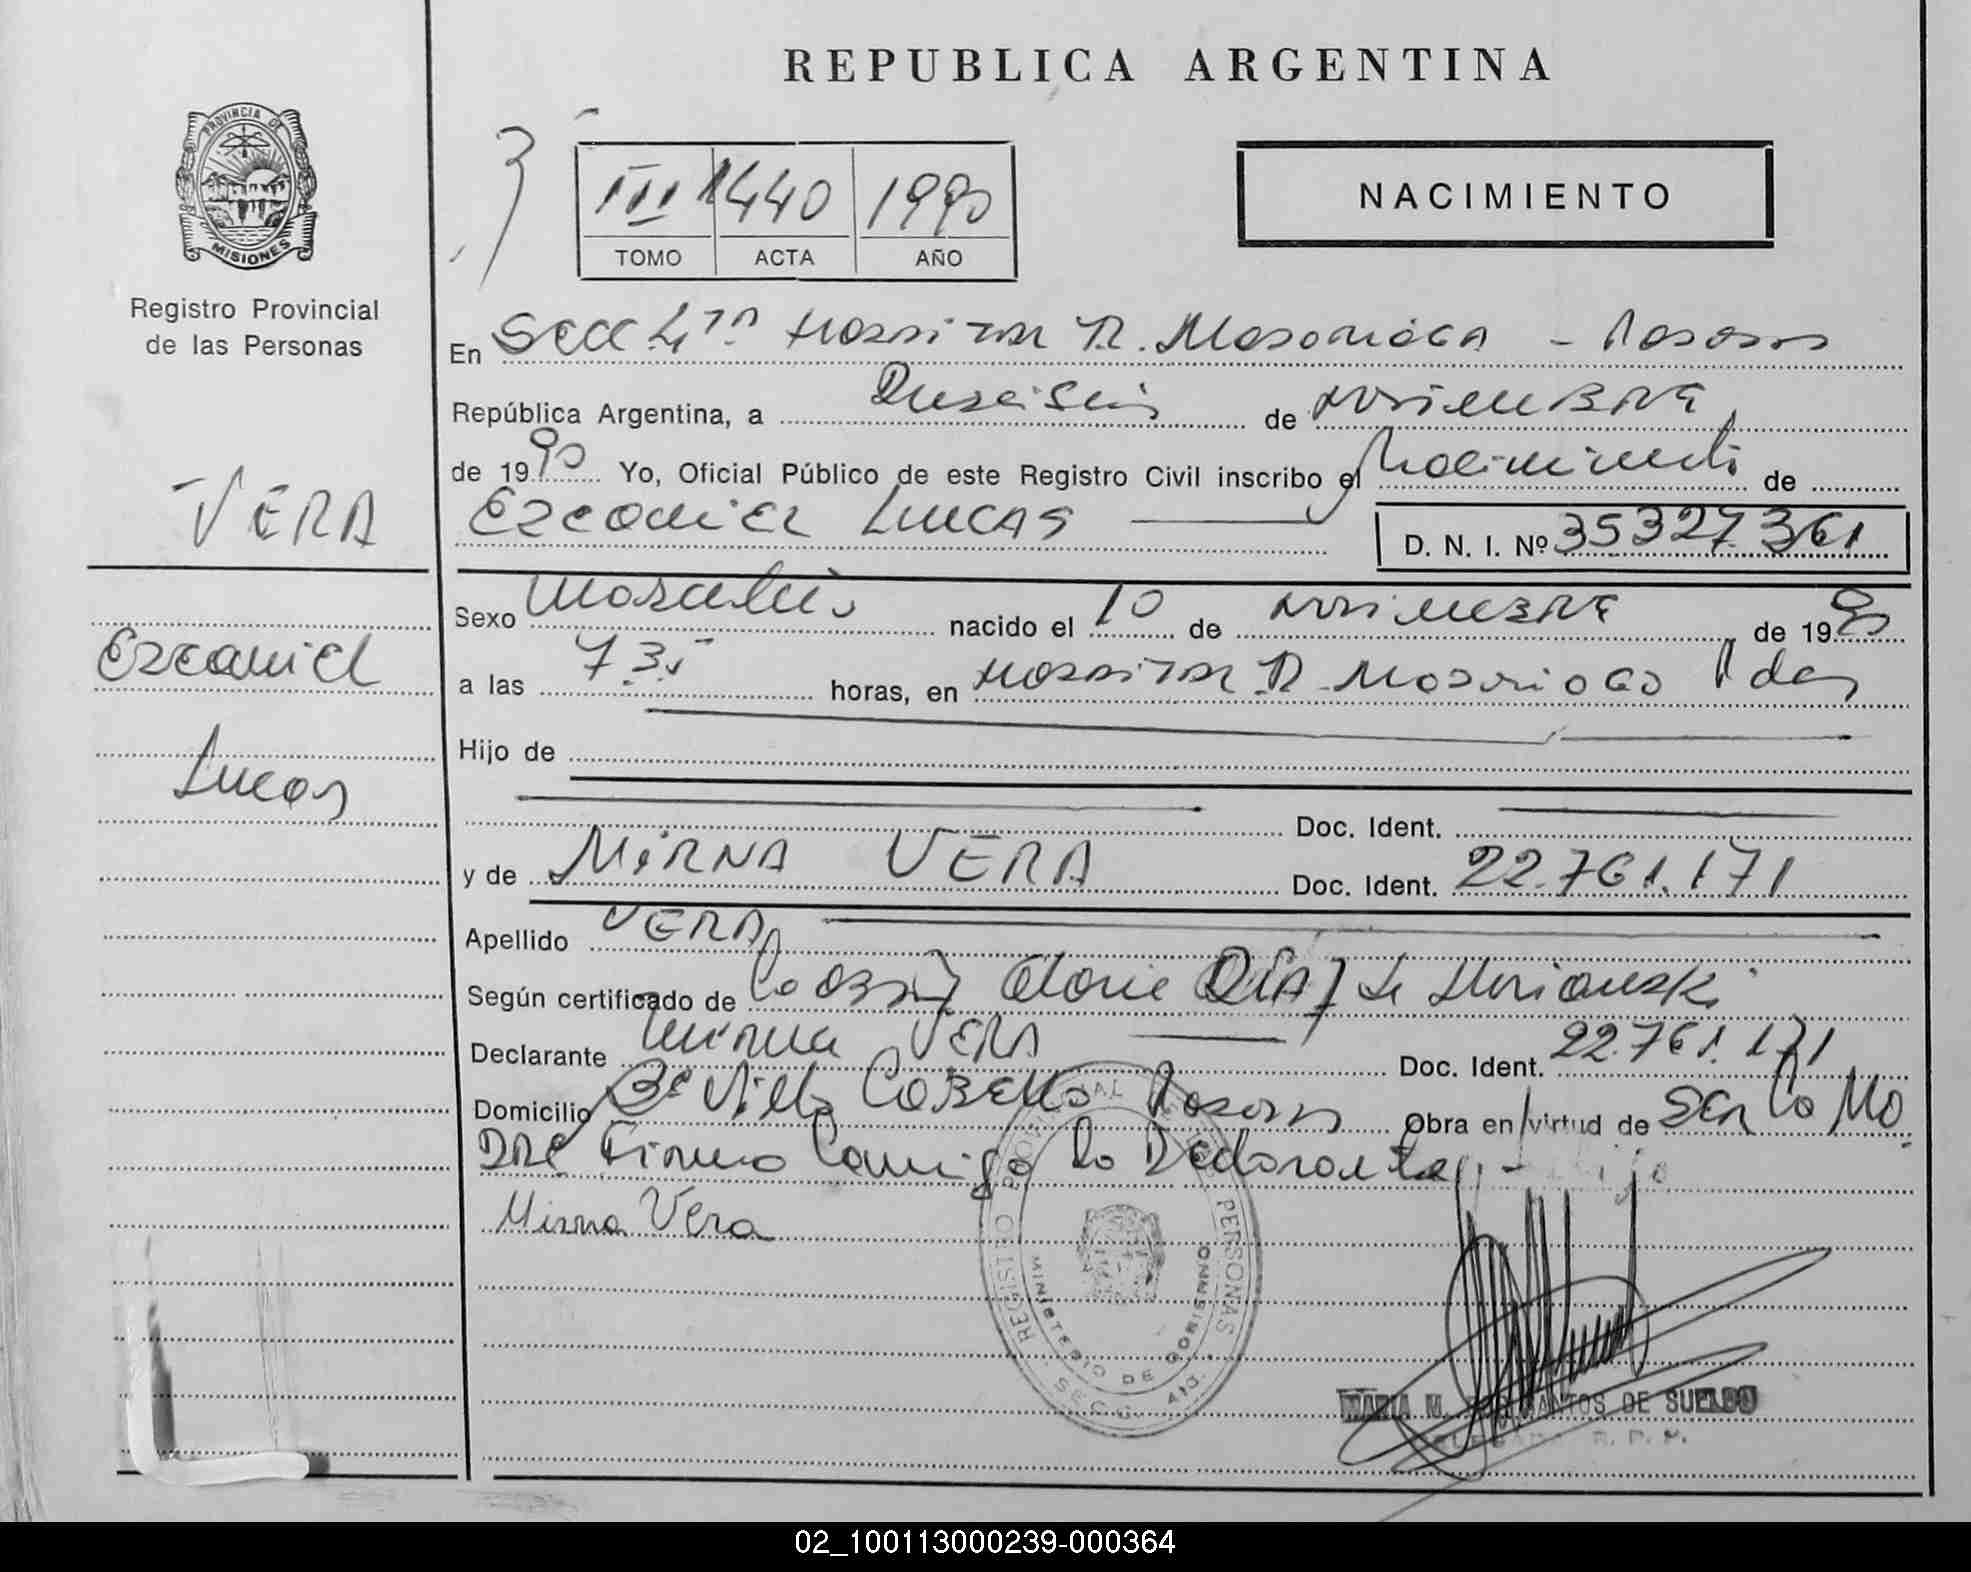 REPUBLICA ARGENTINA
PROVINCIA DE
MISIONES
Registro Provincial
de las Personas
III 1440 1990
TOMO ACTA AÑO
NACIMIENTO
En Secc 4ta Hospital R. Madariaga - Posadas
República Argentina, a Dieciseis de noviembre
de 1990 Yo, Oficial Público de este Registro Civil inscribo el Nacimiento de
Ezequiel Lucas
D. N. I. Nº 35327361
VERA
Ezequiel
Lucas
Sexo Masculino nacido el 10 de noviembre de 1990
a las 7 35 horas, en Hospital R. Madariaga Pdas
Hijo de
Doc. Ident.
y de MIRNA VERA Doc. Ident. 22.761.171
Apellido VERA
Según certificado de la Obst Gloria DIAZ de
Declarante Mirna VERA Doc. Ident. 22.761.171
Domicilio Bº Villa Cabello Posadas Obra en virtud de ser la Ma
dre Firma Conmigo la Declarante
Mirna Vera
REGISTRO PROVINCIAL DE LAS PERSONAS
MINISTERIO DE GOBIERNO
SECC. 4ta.
MARIA M. DE SUELDO
R. P. P.
02_100113000239-000364